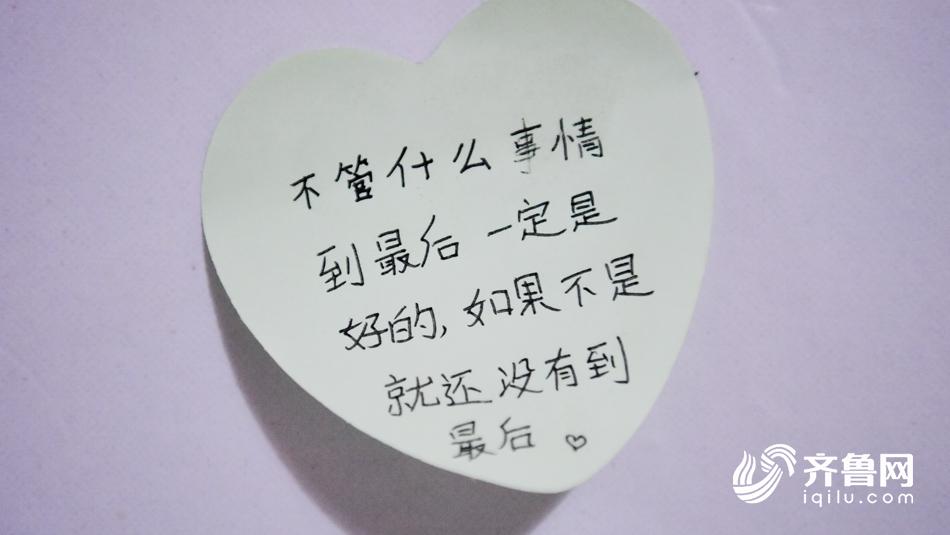 不管什么事情
到最后一定是
好的,如果不是
就还没有到
最后
齐鲁网
iqilu.com